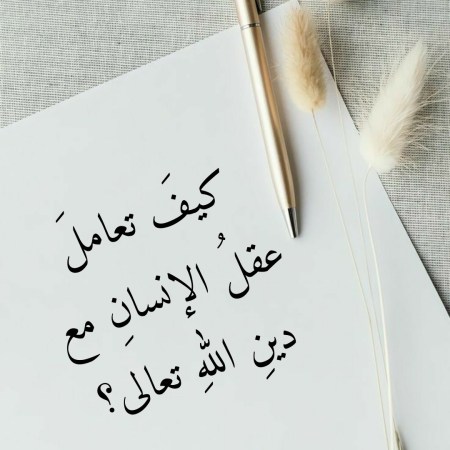 كيفَ تعاملَ
عقلُ الإنسانِ مع
دينِ اللهِ تعالى؟